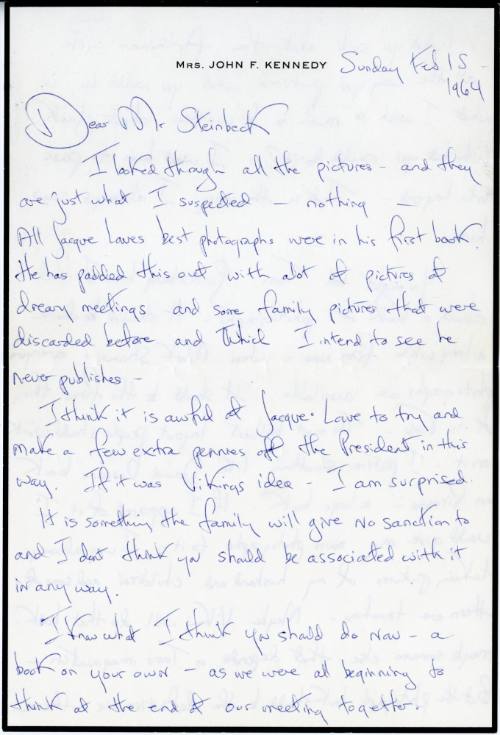 MRS. JOHN F. KENNEDY
Sunday Feb 15
1964
Dear Mr Steinbeck
I looked through all the pictures - and they
are just what I suspected - nothing -
All Jacque Lowes best photographs were in his first book.
He has padded this out with alot of pictures of
dreary meetings and some family pictures that were
discarded before and which I intend to see he
never publishes
I think it is awful of Jacque. Lowe to try and
make a few extra pennies off the President in this
way. If it was Vikings idea - I am surprised.
It is something the family will give no sanction to
and I dont think you should be associated with it
in any way.
I know what I think you should do now - a
book on your own - as we were all beginning to
think at the end of our meeting together.